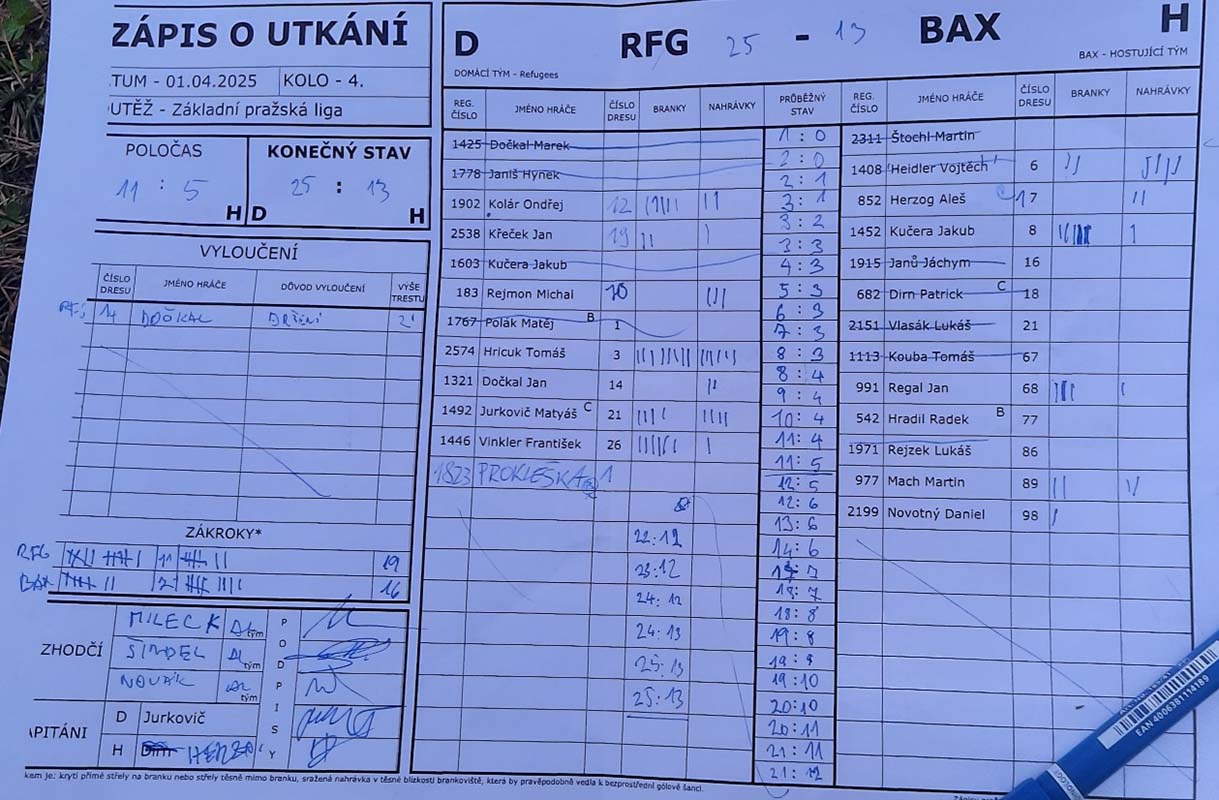 ZÁPIS O UTKÁNÍ
TUM - 01.04.2025 KOLO - 4.
OUTĚŽ - Základní pražská liga
POLOČAS KONEČNÝ STAV
11 : 5 25 : 13
H D H
VYLOUČENÍ
ČÍSLO DRESU JMÉNO HRÁČE DŮVOD VYLOUČENÍ VÝŠE TRESTU
RFG 14 DOČKAL DRŽENÍ 2'
ZÁKROKY*
RFG 11 19
BAX 2 16
ZHODČÍ
MILECK tým
ŠINDEL tým
NOVÁK tým
PODPISY
APITÁNI
D Jurkovič
H Dirn
D RFG 25 - 13 BAX H
DOMÁCÍ TÝM - Refugees BAX - HOSTUJÍCÍ TÝM
REG. ČÍSLO JMÉNO HRÁČE ČÍSLO DRESU BRANKY NAHRÁVKY PRŮBĚŽNÝ STAV REG. ČÍSLO JMÉNO HRÁČE ČÍSLO DRESU BRANKY NAHRÁVKY
1425 Dočkal Marek
1778 Janiš Hynek
1902 Kolár Ondřej 12
2538 Křeček Jan 19
1603 Kučera Jakub
183 Rejmon Michal 10
1767 Polák Matěj B 1
2574 Hricuk Tomáš 3
1321 Dočkal Jan 14
1492 Jurkovič Matyáš C 21
1446 Vinkler František 26
1823 PROKEŠKA 1
22:12
23:12
24:12
24:13
25:13
25:13
1 : 0
2 : 0
2 : 1
3 : 1
3 : 2
3 : 3
4 : 3
5 : 3
6 : 3
7 : 3
8 : 3
8 : 4
9 : 4
10 : 4
11 : 4
11 : 5
12 : 5
12 : 6
13 : 6
14 : 6
18 : 7
18 : 8
19 : 8
19 : 9
19 : 10
20:10
20:11
21 : 11
21 : 12
2311 Štochl Martin
1408 Heidler Vojtěch 6
852 Herzog Aleš 17
1452 Kučera Jakub 8
1915 Janů Jáchym 16
682 Dirn Patrick C 18
2151 Vlasák Lukáš 21
1113 Kouba Tomáš 67
991 Regal Jan 68
542 Hradil Radek B 77
1971 Rejzek Lukáš 86
977 Mach Martin 89
2199 Novotný Daniel 98
kem je: krytí přímé střely na branku nebo střely těsně mimo branku, sražená nahrávka v těsné blízkosti brankoviště, která by pravěpodobně vedla k bezprostřední gólové šanci.
EAN 4006381114189